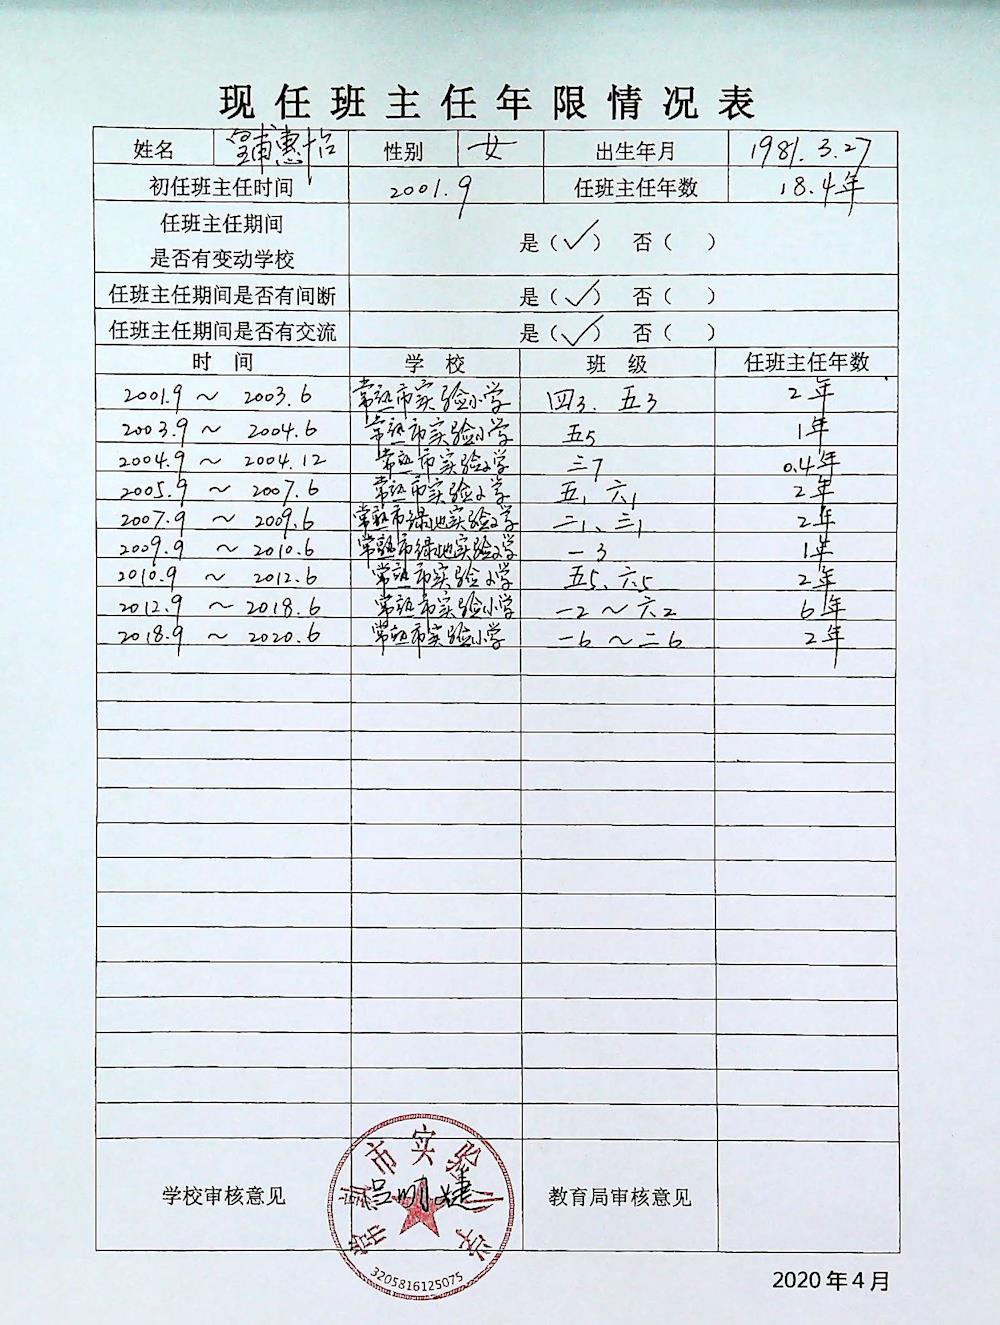 现任班主任年限情况表
姓名 皇甫惠怡 性别 女 出生年月 1981.3.27
初任班主任时间 2001.9 任班主任年数 18.4年
任班主任期间
是否有变动学校 是（✓） 否（ ）
任班主任期间是否有间断 是（✓） 否（ ）
任班主任期间是否有交流 是（✓） 否（ ）
时 间 学 校 班 级 任班主任年数
2001.9 ～ 2003.6 常熟市实验小学 四3、五3 2年
2003.9 ～ 2004.6 常熟市实验小学 五5 1年
2004.9 ～ 2004.12 常熟市实验小学 三7 0.4年
2005.9 ～ 2007.6 常熟市实验小学 五1、六1 2年
2007.9 ～ 2009.6 常熟市绿地实验小学 二1、三1 2年
2009.9 ～ 2010.6 常熟市绿地实验小学 一3 1年
2010.9 ～ 2012.6 常熟市实验小学 五5、六5 2年
2012.9 ～ 2018.6 常熟市实验小学 一2～六2 6年
2018.9 ～ 2020.6 常熟市实验小学 一6～二6 2年
常熟市实验小学
学校审核意见 吕明婕 教育局审核意见
3205816125075
2020年4月